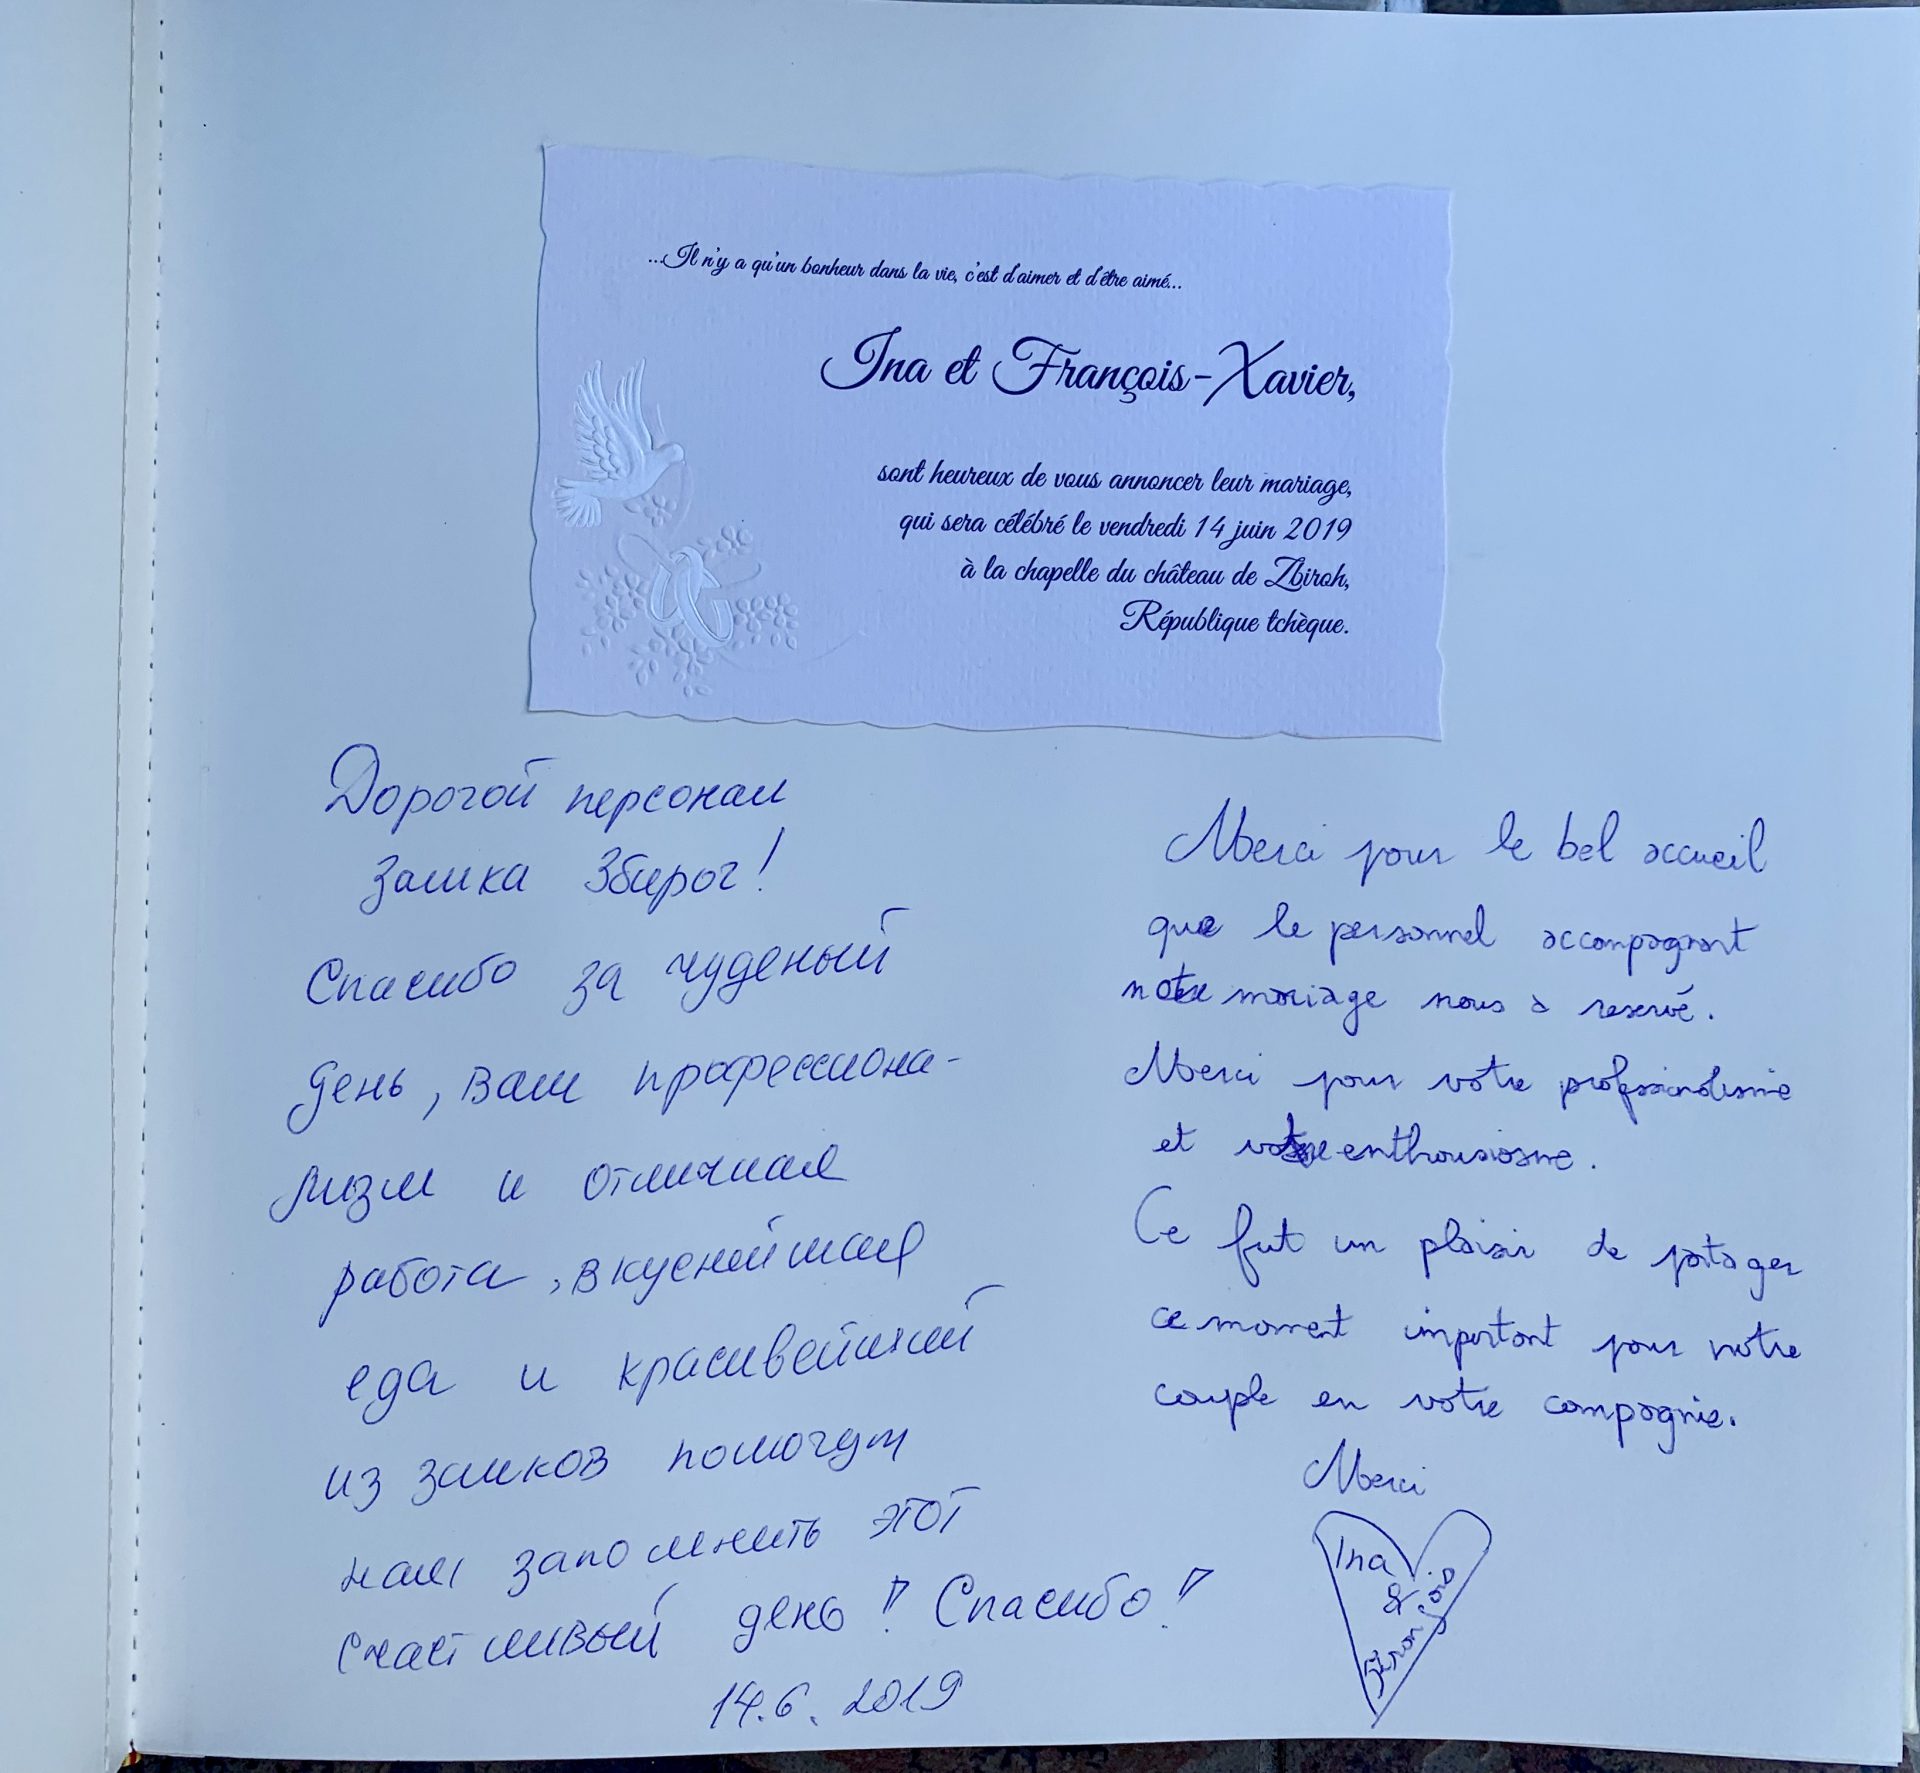 ...Il n'y a qu'un bonheur dans la vie, c'est d'aimer et d'être aimé...
Ina et François-Xavier,
sont heureux de vous annoncer leur mariage,
qui sera célébré le vendredi 14 juin 2019
à la chapelle du château de Zbiroh,
République tchèque.
Дорогой персонал
замка Збирог!
Спасибо за чуденый
день, ваш профессиона-
лизм и отличная
работа, вкуснейшая
еда и красивейший
из замков помогут
нам запомнить этот
счастливый день! Спасибо!
14.6.2019
Merci pour le bel accueil
que le personnel accompagnant
notre mariage nous a reservé.
Merci pour votre professionalisme
et votre enthousiasme.
Ce fut un plaisir de partager
ce moment important pour notre
couple en votre compagnie.
Merci
Ina
&
François